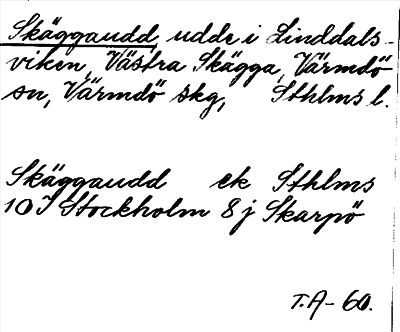 Skäggaudd, udde i Linddals-
viken, Västra Skägga, Värmdö
sn, Värmdö skg, Sthlms l.
Skäggaudd ek Sthlms
10 I Stockholm 8 j Skarpö
T.A-60.